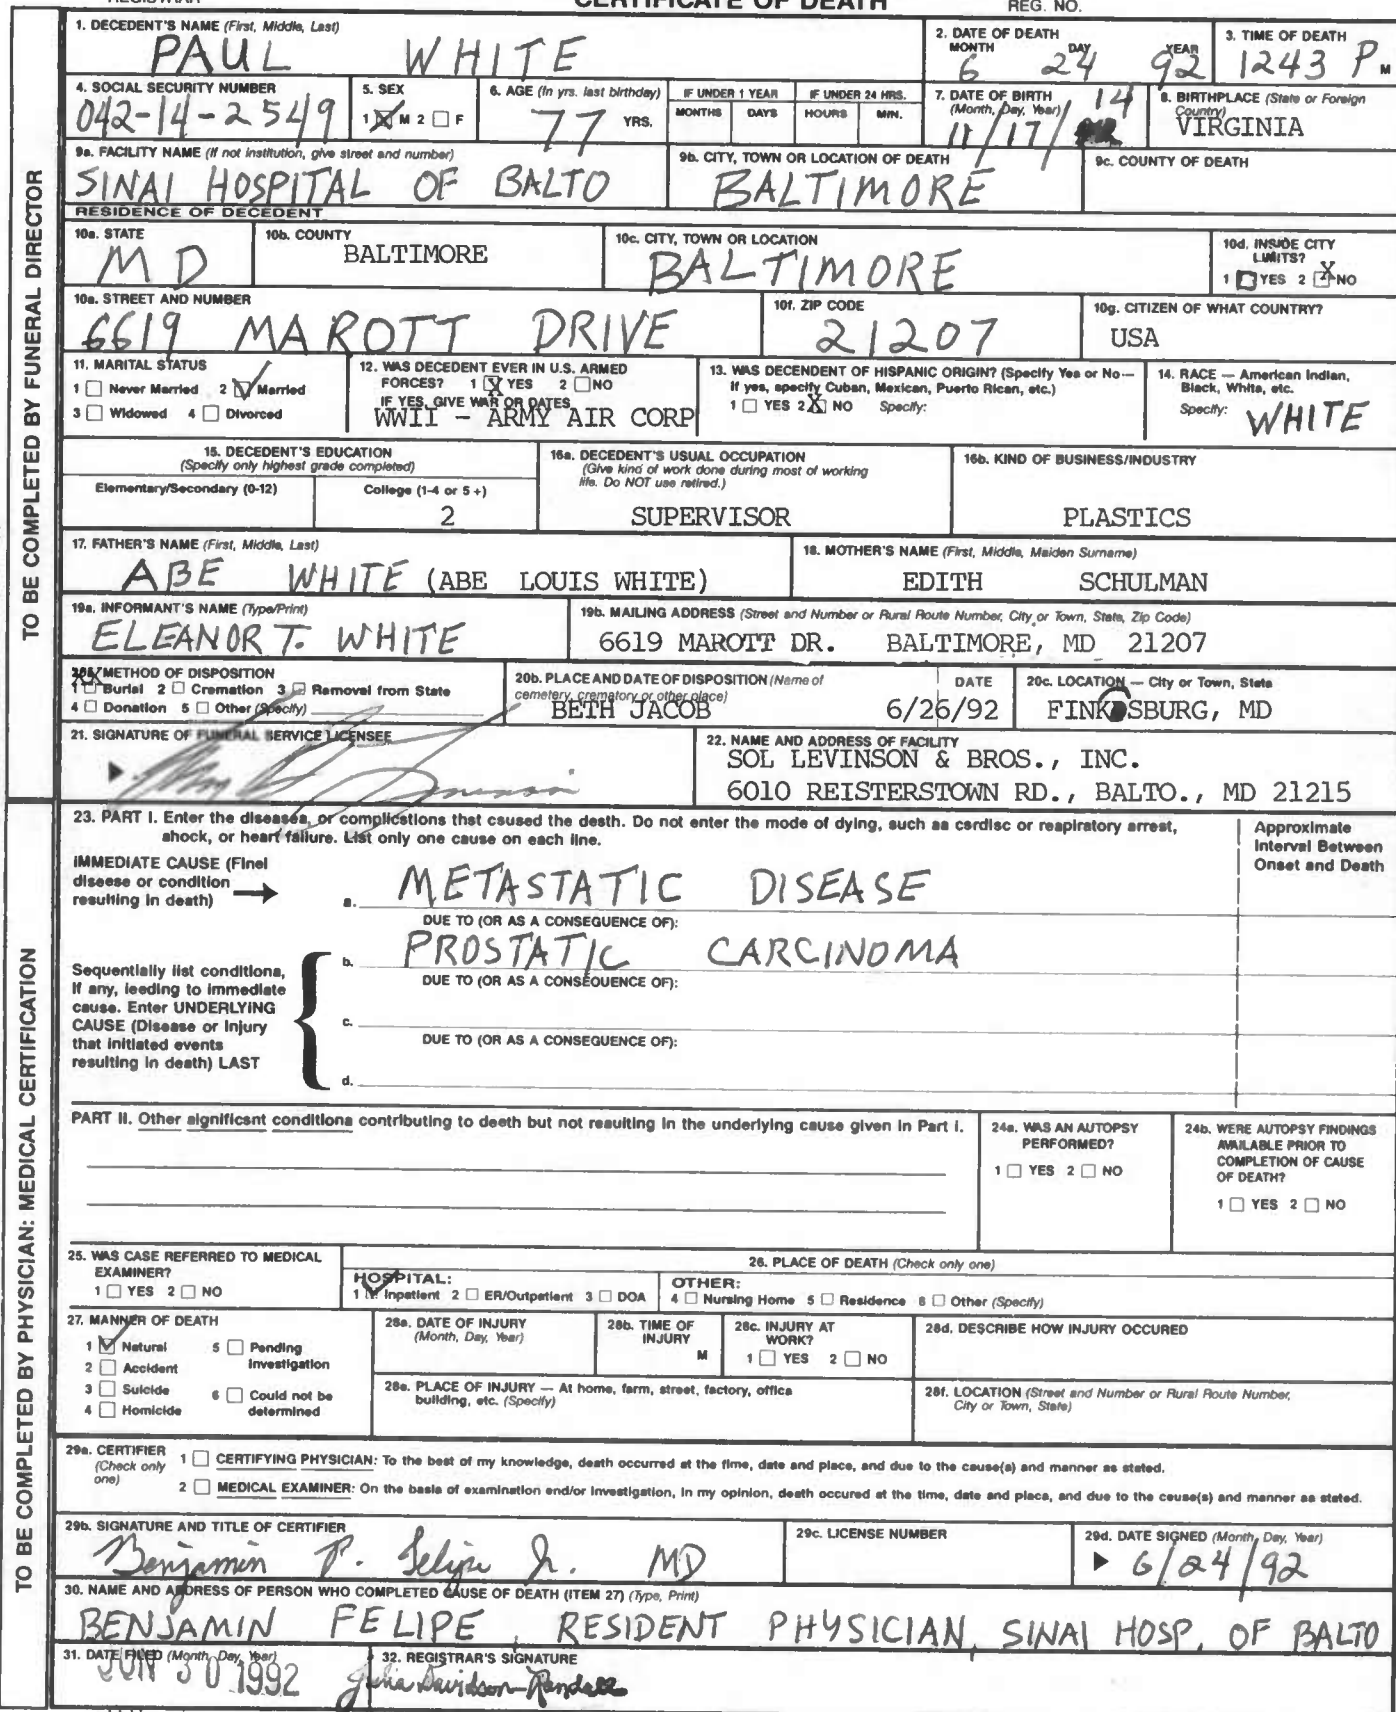 CERTIFICATE OF DEATH
REG. NO.
TO BE COMPLETED BY FUNERAL DIRECTOR
1. DECEDENT'S NAME (First, Middle, Last)
PAUL WHITE
2. DATE OF DEATH
MONTH DAY YEAR
6 24 92
3. TIME OF DEATH
1243 P M
4. SOCIAL SECURITY NUMBER
042-14-2549
5. SEX
1 X M 2 □ F
6. AGE (In yrs. last birthday)
77 YRS.
IF UNDER 1 YEAR
MONTHS DAYS
IF UNDER 24 HRS.
HOURS MIN.
7. DATE OF BIRTH
(Month, Day, Year)
11/17/14
8. BIRTHPLACE (State or Foreign Country)
VIRGINIA
9a. FACILITY NAME (If not institution, give street and number)
SINAI HOSPITAL OF BALTO
9b. CITY, TOWN OR LOCATION OF DEATH
BALTIMORE
9c. COUNTY OF DEATH
RESIDENCE OF DECEDENT
10a. STATE
MD
10b. COUNTY
BALTIMORE
10c. CITY, TOWN OR LOCATION
BALTIMORE
10d. INSIDE CITY
LIMITS?
1 □ YES 2 X NO
10e. STREET AND NUMBER
6619 MAROTT DRIVE
10f. ZIP CODE
21207
10g. CITIZEN OF WHAT COUNTRY?
USA
11. MARITAL STATUS
1 □ Never Married 2 ☑ Married
3 □ Widowed 4 □ Divorced
12. WAS DECEDENT EVER IN U.S. ARMED
FORCES? 1 X YES 2 □ NO
IF YES, GIVE WAR OR DATES
WWII - ARMY AIR CORP
13. WAS DECENDENT OF HISPANIC ORIGIN? (Specify Yes or No—
If yes, specify Cuban, Mexican, Puerto Rican, etc.)
1 □ YES 2 X NO Specify:
14. RACE — American Indian,
Black, White, etc.
Specify: WHITE
15. DECEDENT'S EDUCATION
(Specify only highest grade completed)
Elementary/Secondary (0-12)
College (1-4 or 5 +)
2
16a. DECEDENT'S USUAL OCCUPATION
(Give kind of work done during most of working
life. Do NOT use retired.)
SUPERVISOR
16b. KIND OF BUSINESS/INDUSTRY
PLASTICS
17. FATHER'S NAME (First, Middle, Last)
ABE WHITE (ABE LOUIS WHITE)
18. MOTHER'S NAME (First, Middle, Maiden Surname)
EDITH SCHULMAN
19a. INFORMANT'S NAME (Type/Print)
ELEANOR T. WHITE
19b. MAILING ADDRESS (Street and Number or Rural Route Number, City or Town, State, Zip Code)
6619 MAROTT DR. BALTIMORE, MD 21207
METHOD OF DISPOSITION
XX
1 □ Burial 2 □ Cremation 3 □ Removal from State
4 □ Donation 5 □ Other (Specify)
20b. PLACE AND DATE OF DISPOSITION (Name of
cemetery, crematory or other place)
BETH JACOB
DATE
6/26/92
20c. LOCATION — City or Town, State
FINKSBURG, MD
21. SIGNATURE OF FUNERAL SERVICE LICENSEE
22. NAME AND ADDRESS OF FACILITY
SOL LEVINSON & BROS., INC.
6010 REISTERSTOWN RD., BALTO., MD 21215
TO BE COMPLETED BY PHYSICIAN: MEDICAL CERTIFICATION
23. PART I. Enter the diseases, or complications that caused the death. Do not enter the mode of dying, such as cardiac or respiratory arrest,
shock, or heart failure. List only one cause on each line.
Approximate
Interval Between
Onset and Death
IMMEDIATE CAUSE (Final
disease or condition
resulting in death) →
a. METASTATIC DISEASE
DUE TO (OR AS A CONSEQUENCE OF):
Sequentially list conditions,
if any, leading to immediate
cause. Enter UNDERLYING
CAUSE (Disease or injury
that initiated events
resulting in death) LAST
b. PROSTATIC CARCINOMA
DUE TO (OR AS A CONSEQUENCE OF):
c.
DUE TO (OR AS A CONSEQUENCE OF):
d.
PART II. Other significant conditions contributing to death but not resulting in the underlying cause given in Part I.
24a. WAS AN AUTOPSY
PERFORMED?
1 □ YES 2 □ NO
24b. WERE AUTOPSY FINDINGS
AVAILABLE PRIOR TO
COMPLETION OF CAUSE
OF DEATH?
1 □ YES 2 □ NO
25. WAS CASE REFERRED TO MEDICAL
EXAMINER?
1 □ YES 2 □ NO
26. PLACE OF DEATH (Check only one)
HOSPITAL:
1 ☑ Inpatient 2 □ ER/Outpatient 3 □ DOA
OTHER:
4 □ Nursing Home 5 □ Residence 6 □ Other (Specify)
27. MANNER OF DEATH
1 ☑ Natural 5 □ Pending
2 □ Accident Investigation
3 □ Suicide 6 □ Could not be
4 □ Homicide determined
28a. DATE OF INJURY
(Month, Day, Year)
28b. TIME OF
INJURY
M
28c. INJURY AT
WORK?
1 □ YES 2 □ NO
28d. DESCRIBE HOW INJURY OCCURED
28e. PLACE OF INJURY — At home, farm, street, factory, office
building, etc. (Specify)
28f. LOCATION (Street and Number or Rural Route Number,
City or Town, State)
29a. CERTIFIER
(Check only
one)
1 □ CERTIFYING PHYSICIAN: To the best of my knowledge, death occurred at the time, date and place, and due to the cause(s) and manner as stated.
2 □ MEDICAL EXAMINER: On the basis of examination and/or investigation, in my opinion, death occured at the time, date and place, and due to the cause(s) and manner as stated.
29b. SIGNATURE AND TITLE OF CERTIFIER
Benjamin P. Felipe Jr. MD
29c. LICENSE NUMBER
29d. DATE SIGNED (Month, Day, Year)
6/24/92
30. NAME AND ADDRESS OF PERSON WHO COMPLETED CAUSE OF DEATH (ITEM 27) (Type, Print)
BENJAMIN FELIPE, RESIDENT PHYSICIAN, SINAI HOSP. OF BALTO
31. DATE FILED (Month, Day, Year)
JUN 30 1992
32. REGISTRAR'S SIGNATURE
Julia Davidson-Randall